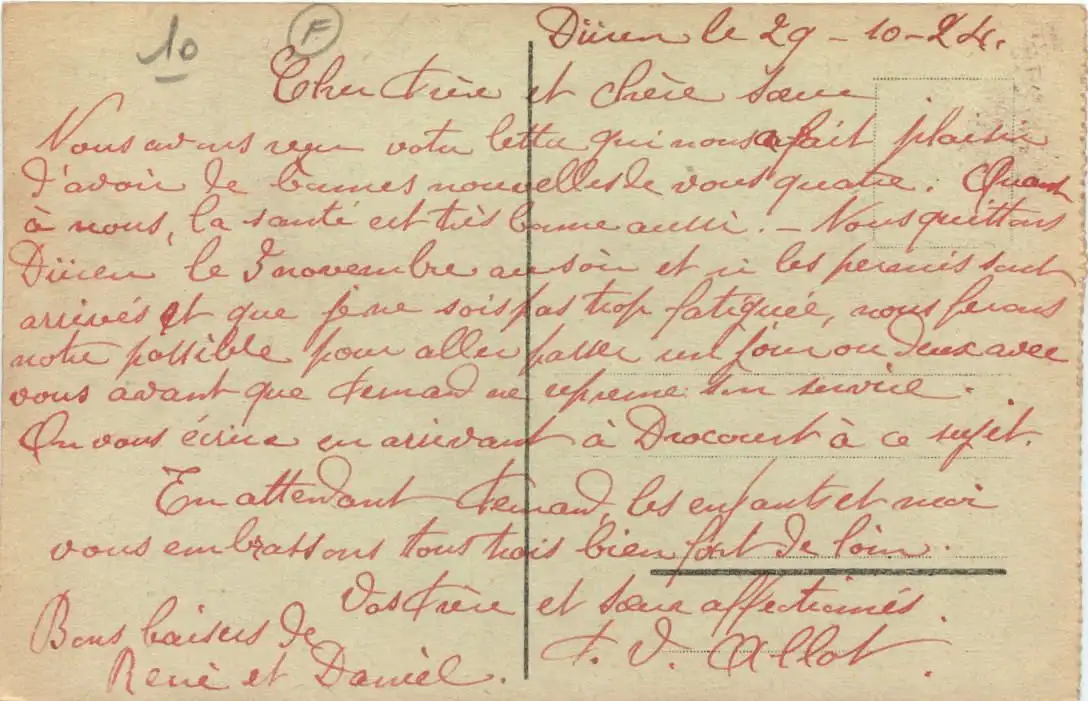 10
F
Düren le 29-10-24.
Cher Frère et chère sœur
Nous avons reçu votre lettre qui nous a fait plaisir
d'avoir de bonnes nouvelles de vous quatre. Quant
à nous, la santé est très bonne aussi. - Nous quittons
Düren le 3 novembre au soir et si les permis sont
arrivés et que je ne sois pas trop fatiguée, nous ferons
notre possible pour aller passer un jour ou deux avec
vous avant que Fernand ne reprenne son service.
On vous écrira en arrivant à Drocourt à ce sujet.
En attendant Fernand, les enfants et moi
vous embrassons tous trois bien fort de loin.
Vos Frère et sœur affectionnés.
Bons baisers de
F. V. Allot.
René et Daniel.